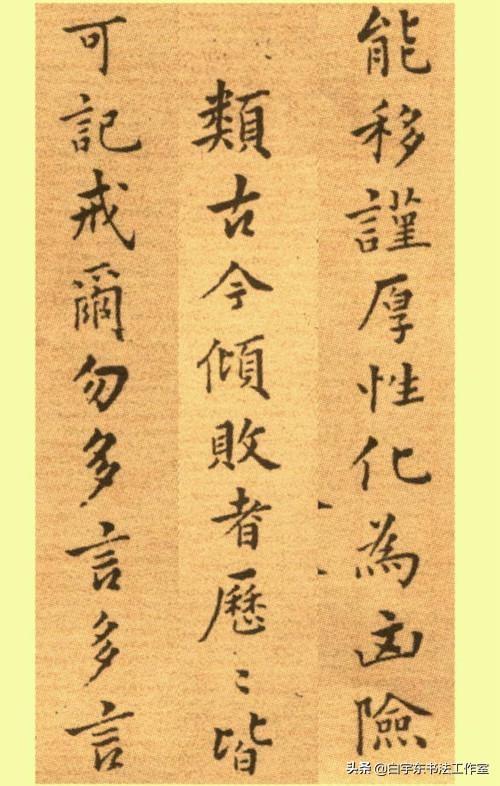 能移謹厚性化為凶險
類古今傾敗者歷〻皆
可記戒爾勿多言多言
头条 @白宇东书法工作室